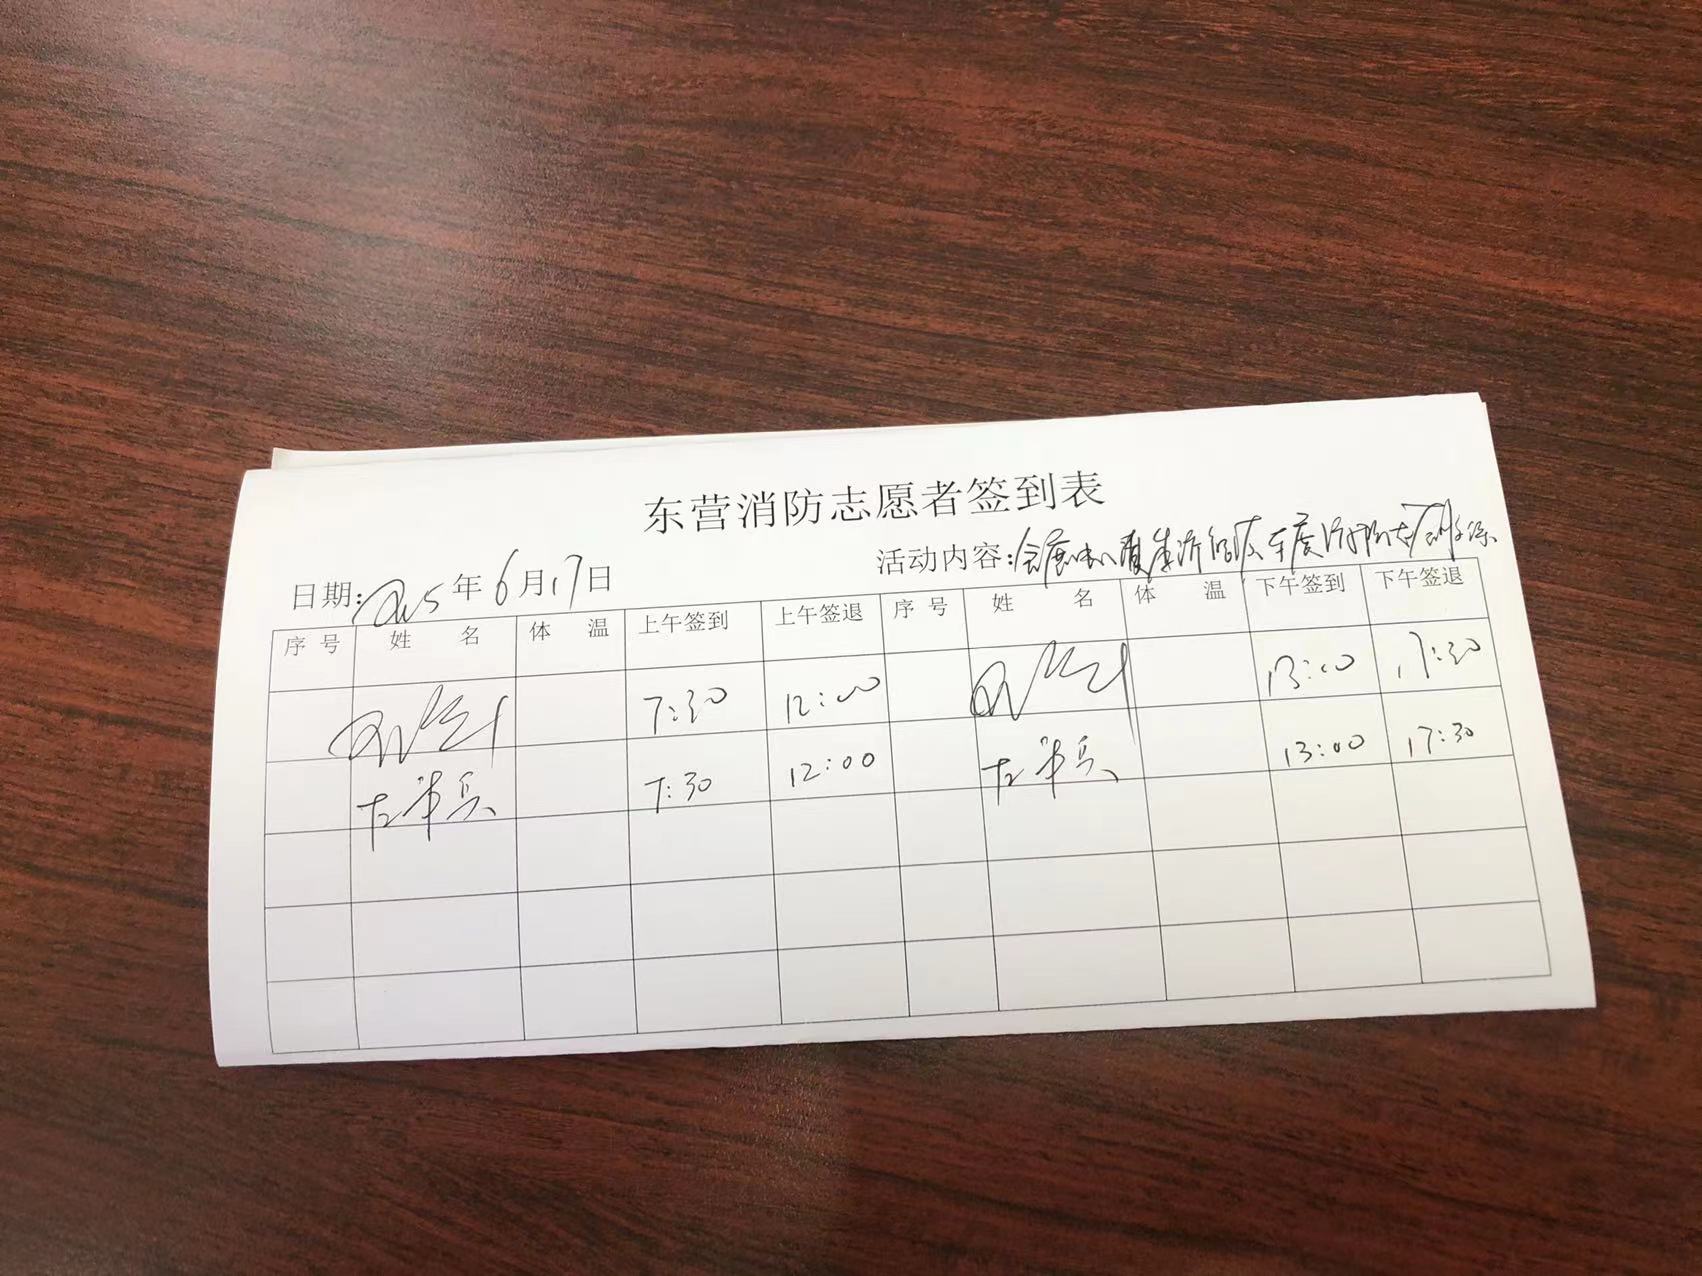 东营消防志愿者签到表
日期:2025年6月17日 活动内容:
序号 姓名 体温 上午签到 上午签退 序号 姓名 体温 下午签到 下午签退
7:30 12:00 13:00 17:30
左军兵 7:30 12:00 左军兵 13:00 17:30